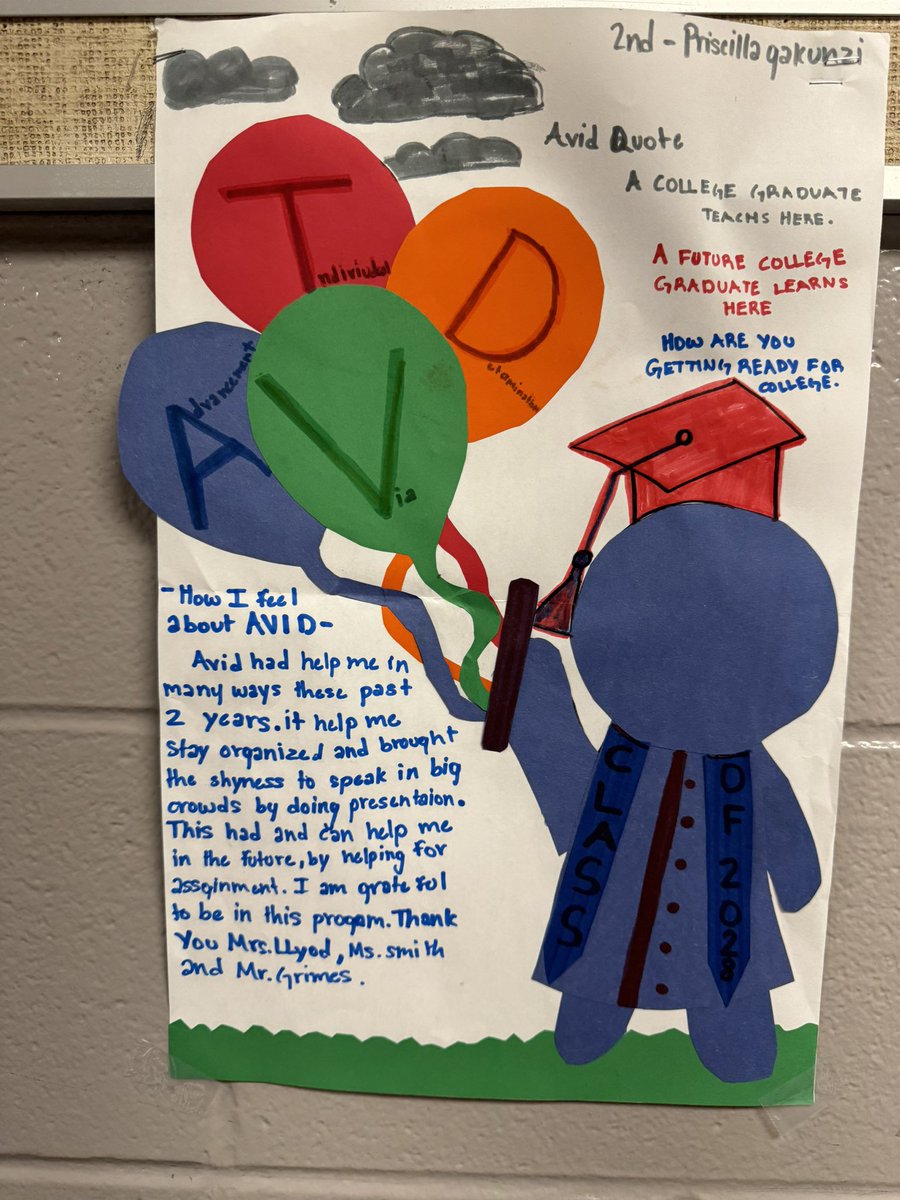 2nd - Priscilla gakunzi
Avid Quote
A COLLEGE GRADUATE
TEACHS HERE.
A FUTURE COLLEGE
GRADUATE LEARNS
HERE
HOW ARE YOU
GETTING READY FOR
COLLEGE.
Advancement
Via
Individual
Determination
-How I feel
about AVID-
Avid had help me in
many ways these past
2 years. it help me
stay organized and brought
the shyness to speak in big
crowds by doing presentaion.
This had and can help me
in the future, by helping for
assginment. I am grateful
to be in this progam. Thank
you Mrs. Llyod, Ms. smith
and Mr. Grimes.
CLASS
OF 2028